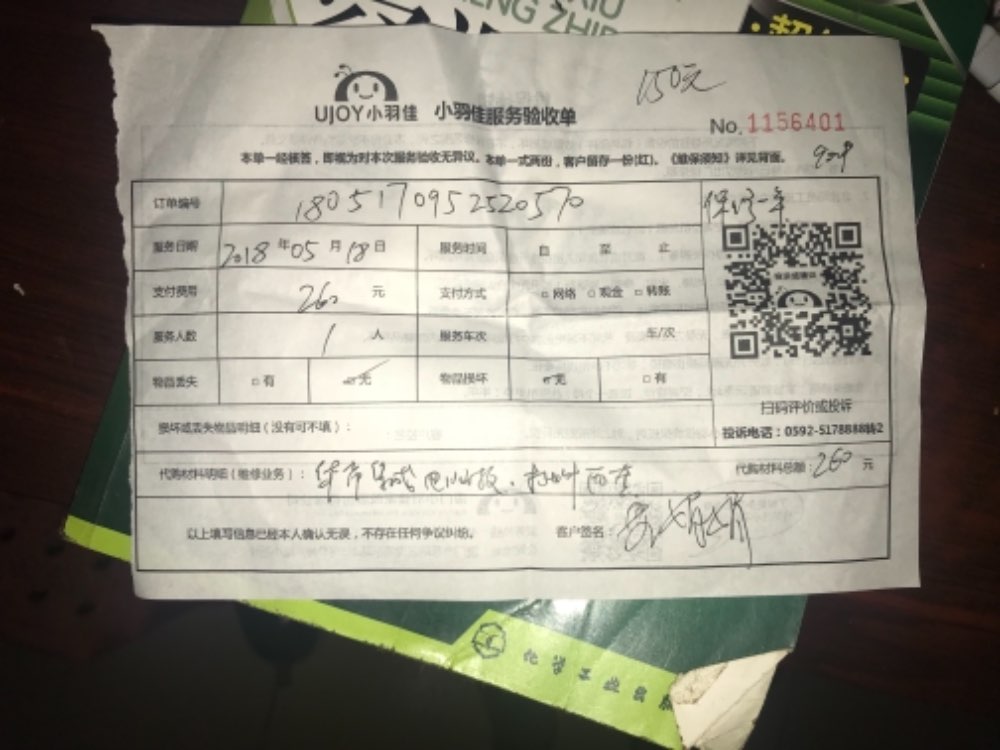 XIU
ENG ZHI
150元
UJOY小羽佳 小羽佳服务验收单
No. 1156401
本单一经核签，即视为对本次服务验收无异议。本单一式两份，客户留存一份(红)。《维保须知》详见背面。
订单编号 180517095252057０ 保修一年
服务日期 2018 年 05 月 18 日 服务时间 自 至 止
支付费用 260 元 支付方式 □网络 □现金 □转账
服务人数 1 人 服务车次 车/次
物品丢失 □有 ☑无 物品损坏 ☑无 □有
扫码评价或投诉
损坏或丢失物品明细（没有可不填）： 投诉电话：0592-5178888转2
代购材料明细（维修业务）： 电脑板 代购材料总额：260 元
以上填写信息已经本人确认无误，不存在任何争议纠纷。 客户签名：
化学工业出版